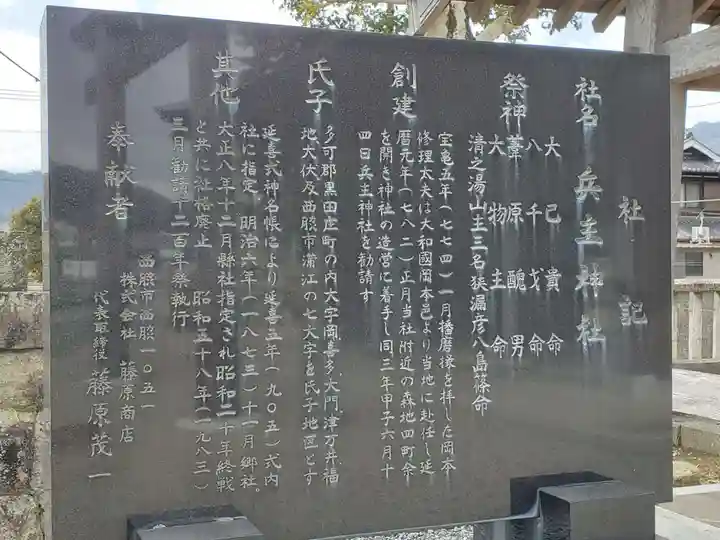 社記
社名 兵主神社
祭神 大己貴命
八千戈命
葦原醜男命
大物主命
清之湯山主三名狭漏彦八島篠命
創建 宝亀五年(七七四)一月播磨掾を拝した岡本
修理太夫は大和國岡本邑より当地に赴任し延
暦元年(七八二)正月当社附近の森地四町余
を開き神社の造営に着手し同三年甲子六月十
四日兵主神社を勧請す
氏子 多可郡黒田庄町の内大字岡、喜多、大門、津万井、福
地、大伏及西脇市瀟江の七大字を氏子地区とす
其他 延喜式神名帳により延喜五年(九〇五)式内
社に指定。明治六年(一八七三)十一月郷社。
大正八年十二月縣社指定され昭和二十年終戦
と共に社格廃止 昭和五十八年(一九八三)
三月勧請千二百年祭執行
奉献者 西脇市西脇一〇五一
株式会社 藤原商店
代表取締役 藤原茂一